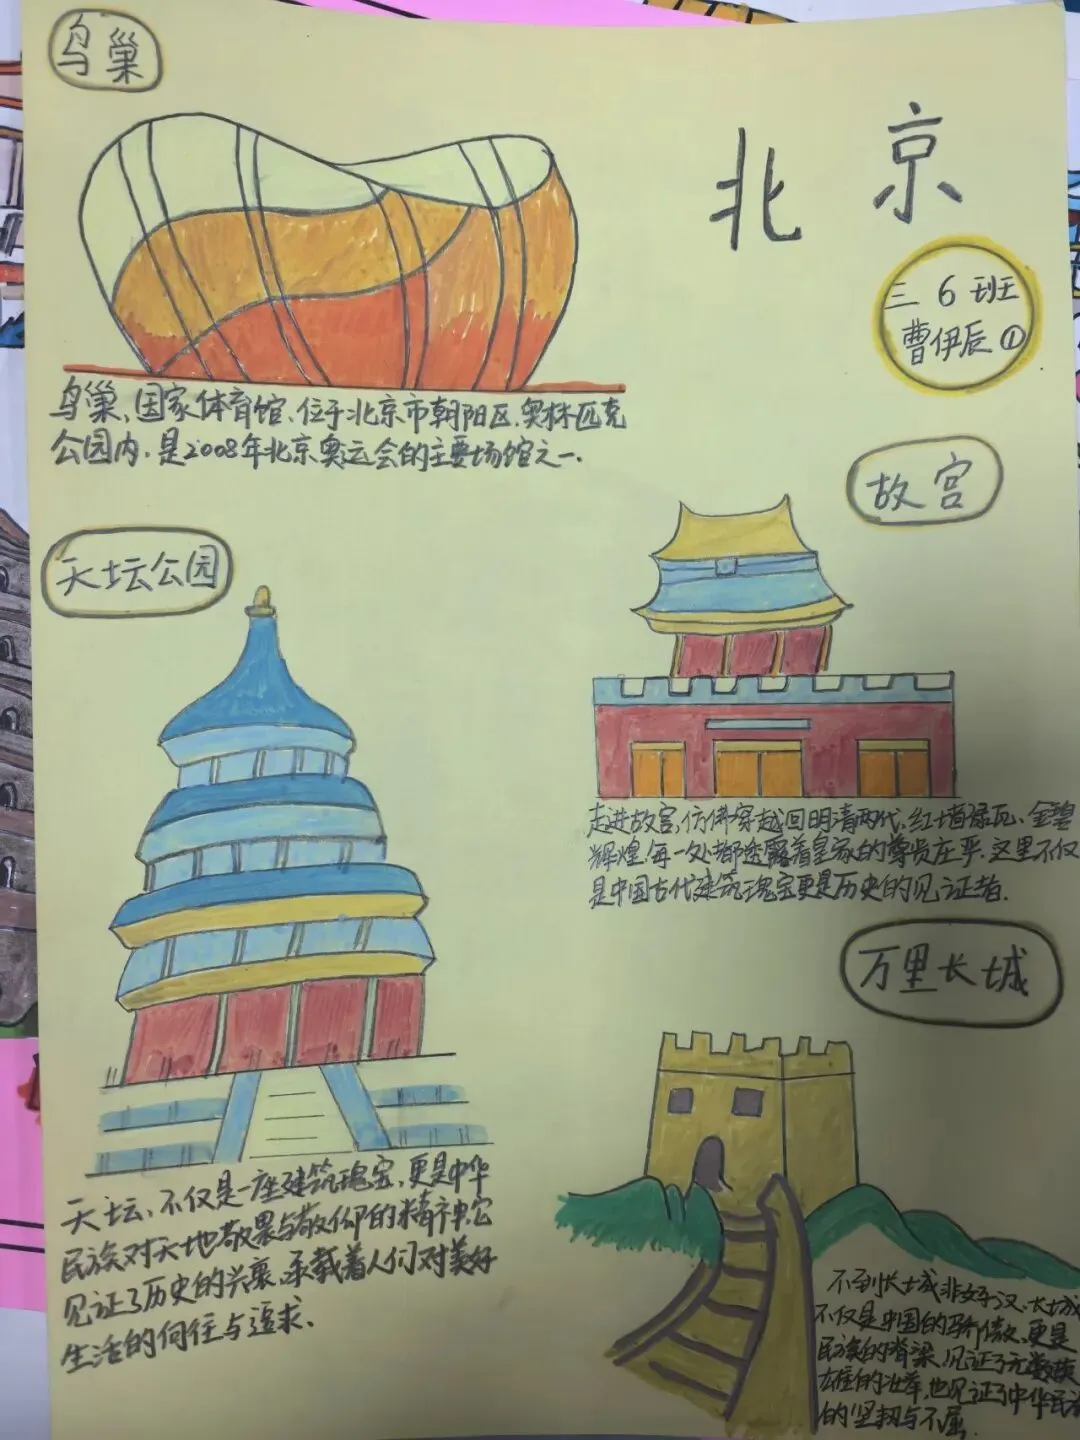 鸟巢
北京
三 6 班
曹伊辰 ①
鸟巢、国家体育馆、位于北京市朝阳区,奥林匹克
公园内,是2008年北京奥运会的主要场馆之一.
故宫
天坛公园
走进故宫,仿佛穿越回明清两代、红墙绿瓦、金碧
辉煌.每一处都透露着皇家的尊贵庄严.这里不仅
是中国古代建筑瑰宝更是历史的见证者.
万里长城
天坛、不仅是一座建筑瑰宝、更是中华
民族对天地敬畏与敬仰的精神.它
见证了历史的兴衰、承载着人们对美好
生活的向往与追求、
不到长城非好汉、长城
不仅是中国的骄傲、更是
民族的脊梁,见证了无数英
雄的壮举,也见证了中华民族
的坚韧与不屈.